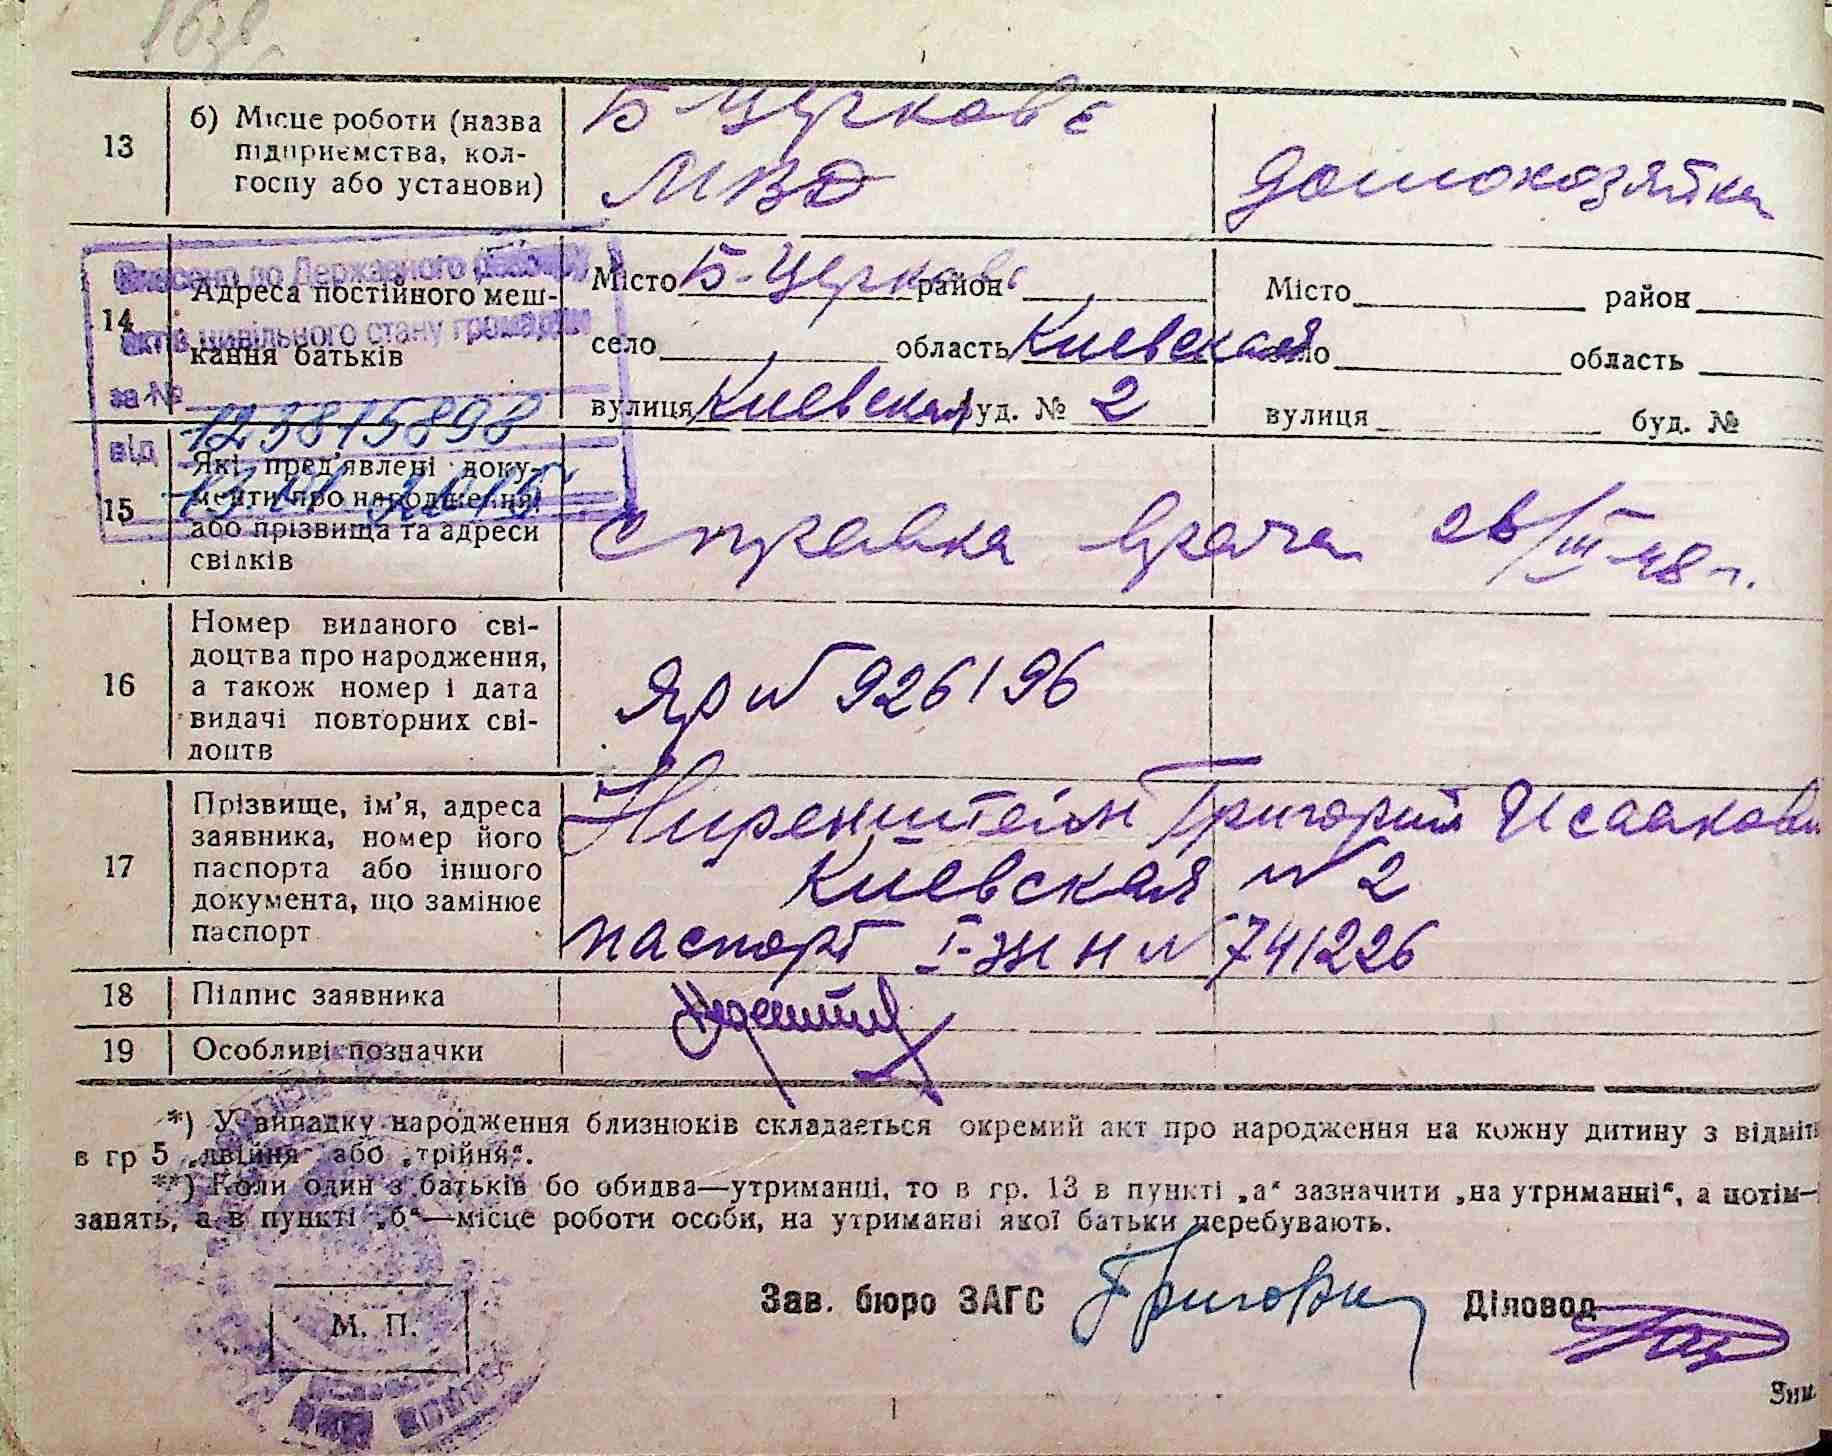 13
б) Місце роботи (назва
підприємства, кол-
госпу або установи)
Б Церковь
МВД
домохозяйка
Внесено до Державного реєстру
актів цивільного стану громадян
за № 123815898
від
14
Адреса постійного меш-
кання батьків
Місто Б-Церковь район
село область Киевская
вулиця Киевская буд. № 2
Місто район
село область
вулиця буд. №
15
Які пред'явлені доку-
менти про народження
або прізвища та адреси
свідків
справка врача 26/III 48 г.
16
Номер виданого сві-
доцтва про народження,
а також номер і дата
видачі повторних сві-
доцтв
ЯР № 926196
17
Прізвище, ім'я, адреса
заявника, номер його
паспорта або іншого
документа, що замінює
паспорт
Ниренштейн Григорий Исаакови
Киевская № 2
паспорт I-ЖН № 741226
18
Підпис заявника
19
Особливі позначки
*) У випадку народження близнюків складається окремий акт про народження на кожну дитину з відміт
в гр 5 „двійня" або „трійня".
**) Коли один з батьків бо обидва—утриманці, то в гр. 13 в пункті „а" зазначити „на утриманні", а потім—
занять, а в пункті „б"—місце роботи особи, на утриманні якої батьки перебувають.
М. П.
Зав. бюро ЗАГС
Діловод